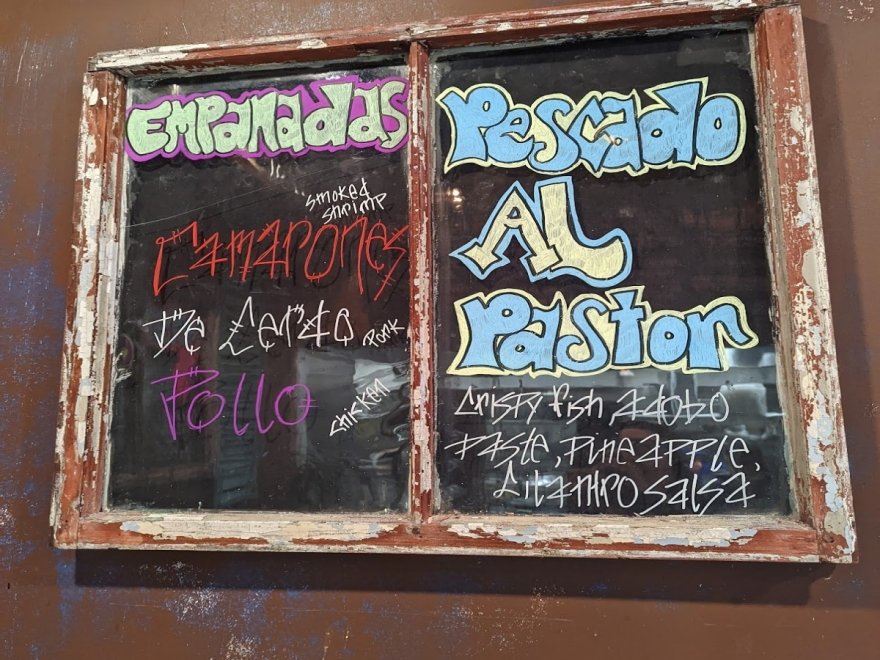 Empanadas
smoked
shrimp
Camarones
De Cerdo Pork
Pollo chicken
Pescado
AL
Pastor
Cristy fish, adobo
Paste, Pineapple,
Cilantro salsa